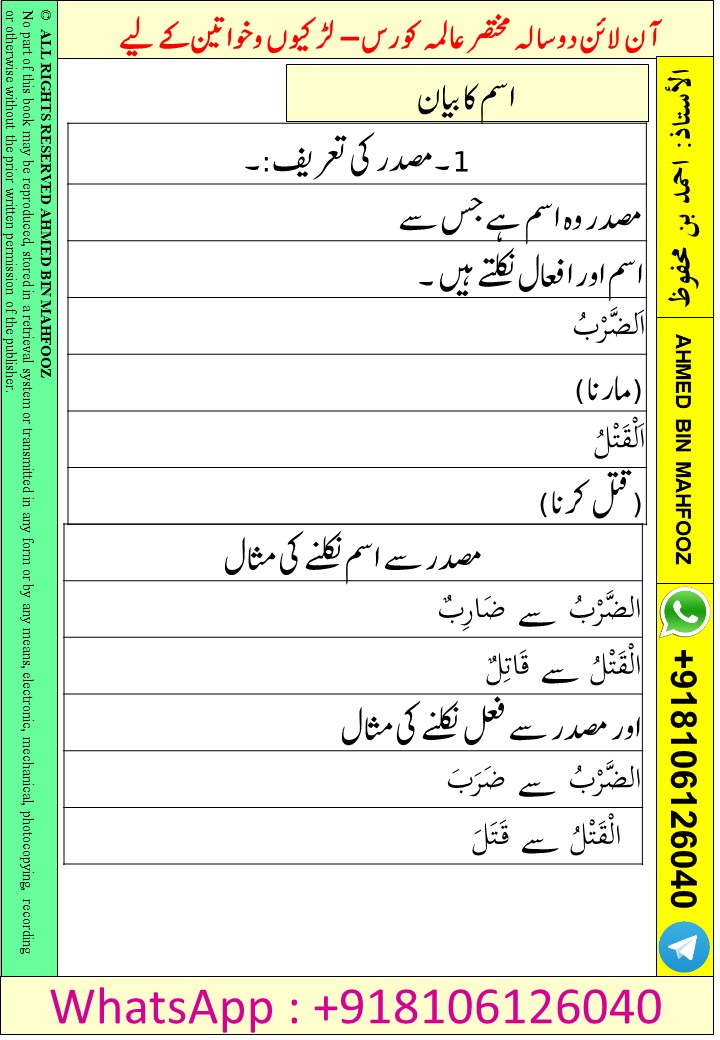 آن لائن دوسالہ مختصر عالمہ کورس– لڑکیوں وخواتین کے لیے
اسم کا بیان
1۔مصدر کی تعریف:۔
مصدر وہ اسم ہے جس سے
اسم اور افعال نکلتے ہیں ۔
اَلضَّرْبُ
(مارنا)
اَلْقَتْلُ
(قتل کرنا)
مصدر سے اسم نکلنے کی مثال
الضَّرْبُ سے ضَارِبٌ
الْقَتْلُ سے قَاتِلٌ
اور مصدر سے فعل نکلنے کی مثال
الضَّرْبُ سے ضَرَبَ
الْقَتْلُ سے قَتَلَ
الأستاذ: احمد بن محفوظ
AHMED BIN MAHFOOZ
+918106126040
© ALL RIGHTS RESERVED AHMED BIN MAHFOOZ
No part of this book may be reproduced, stored in a retrieval system or transmitted in any form or by any means, electronic, mechanical, photocopying, recording
or otherwise without the prior written permission of the publisher.
WhatsApp : +918106126040